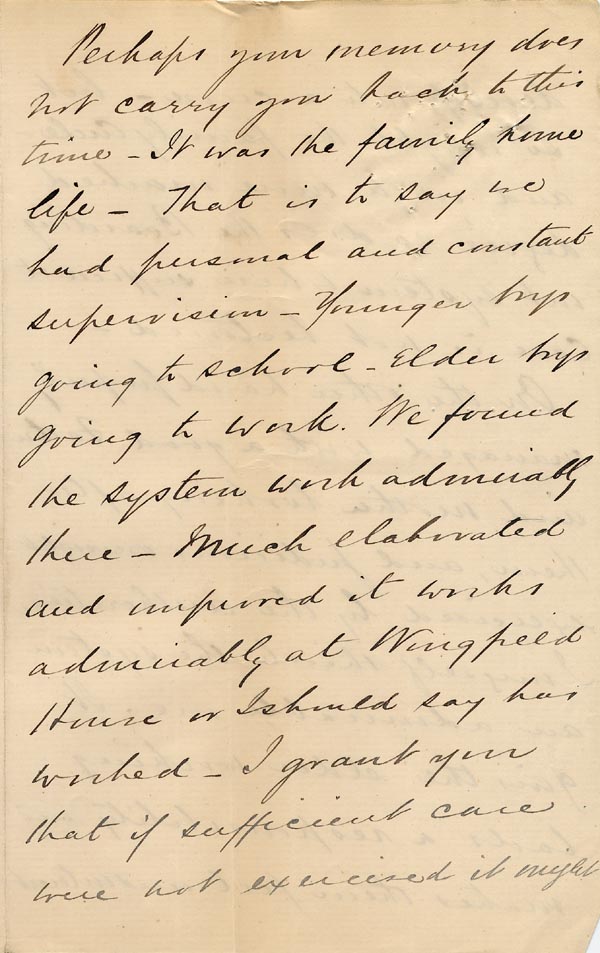 Perhaps your memory does
not carry you back to this
time - It was the family home
life - That is to say we
had personal and constant
supervision - Younger boys
going to school - Elder boys
going to work. We found
the system work admirably
there - Much elaborated
and improved it works
admirably at Wingfield
House or I should say has
worked - I grant you
that if sufficient care
were not exercised it might